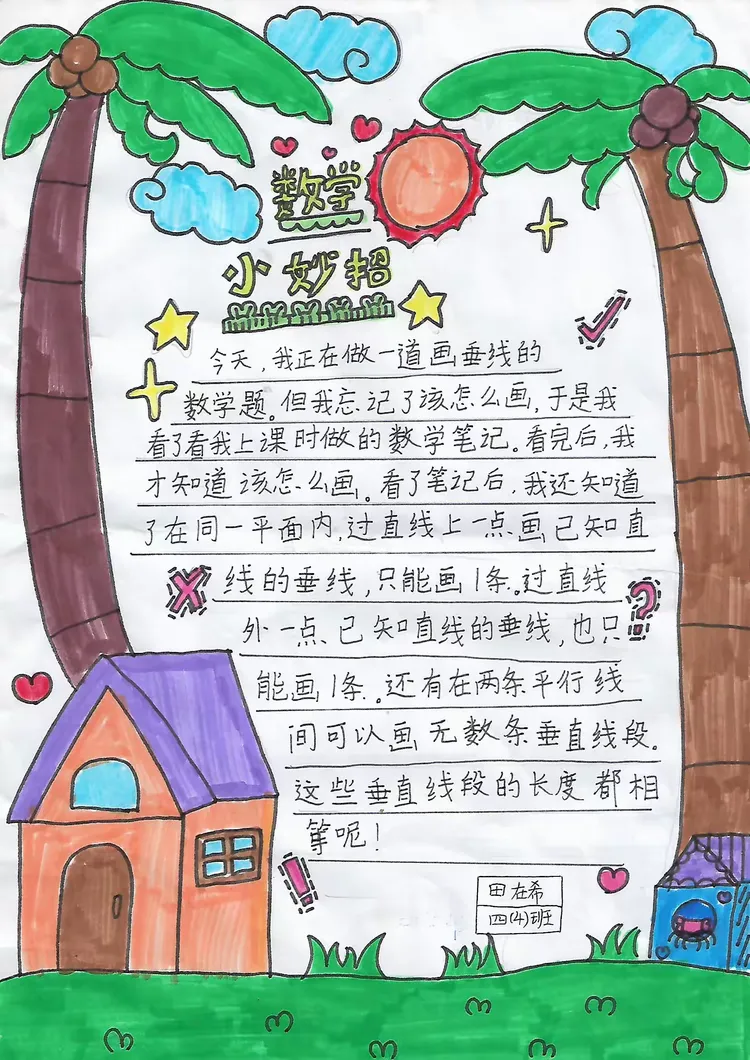 数学
小妙招
今天，我正在做一道画垂线的
数学题。但我忘记了该怎么画，于是我
看了看我上课时做的数学笔记。看完后，我
才知道该怎么画。看了笔记后，我还知道
了在同一平面内，过直线上一点画已知直
线的垂线，只能画1条。过直线
外一点、已知直线的垂线，也只
能画1条。还有在两条平行线
间可以画无数条垂直线段。
这些垂直线段的长度都相
等呢！
田在希
四(4)班